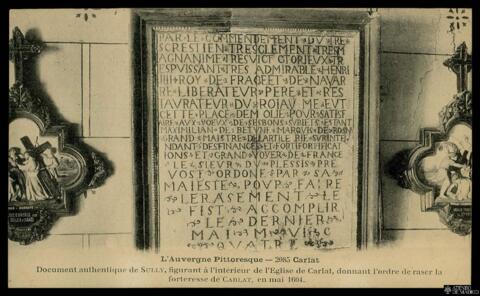 PAR LE COMMENDEMENT DV TRES
CRESTIEN TRESCLEMENT TRESM
AGNANIME TRESVICTORIEUX TR
ESPVISSANT TRES ADMIRABLE HENRI
IIII ROY DE FRACE ET DE NAVAR
RE LIBERATEVR PERE ET RES
TAVRATEVR DV ROIAVME EVT
CETTE PLACE DEMOLIE POVR SATISF
AIRE AVX VOEVX DE SES BONS SVBIETS ESTANT
MAXIMILIAN DE BETVNE MARQVIS DE ROSN
GRAND MAISTRE DE LARTILERIE SVRINTE
NDANT DES FINANCES ET FORTIFICAT
IONS ET GRAND VOYER DE FRANCE
LE SIEVR DV PLESSIS PRE
VOST ORDONE PAR SA
MAIESTE POVR FAIRE
LE RASEMENT LE
FIST ACCOMPLIR
LE DERNIER
MAI M VI C
QVATRE
L'Auvergne Pittoresque — 2085 Carlat
Document authentique de SULLY, figurant à l'intérieur de l'Eglise de Carlat, donnant l'ordre de raser la
forteresse de CARLAT, en mai 1604.
ATENEO
DE MADRID